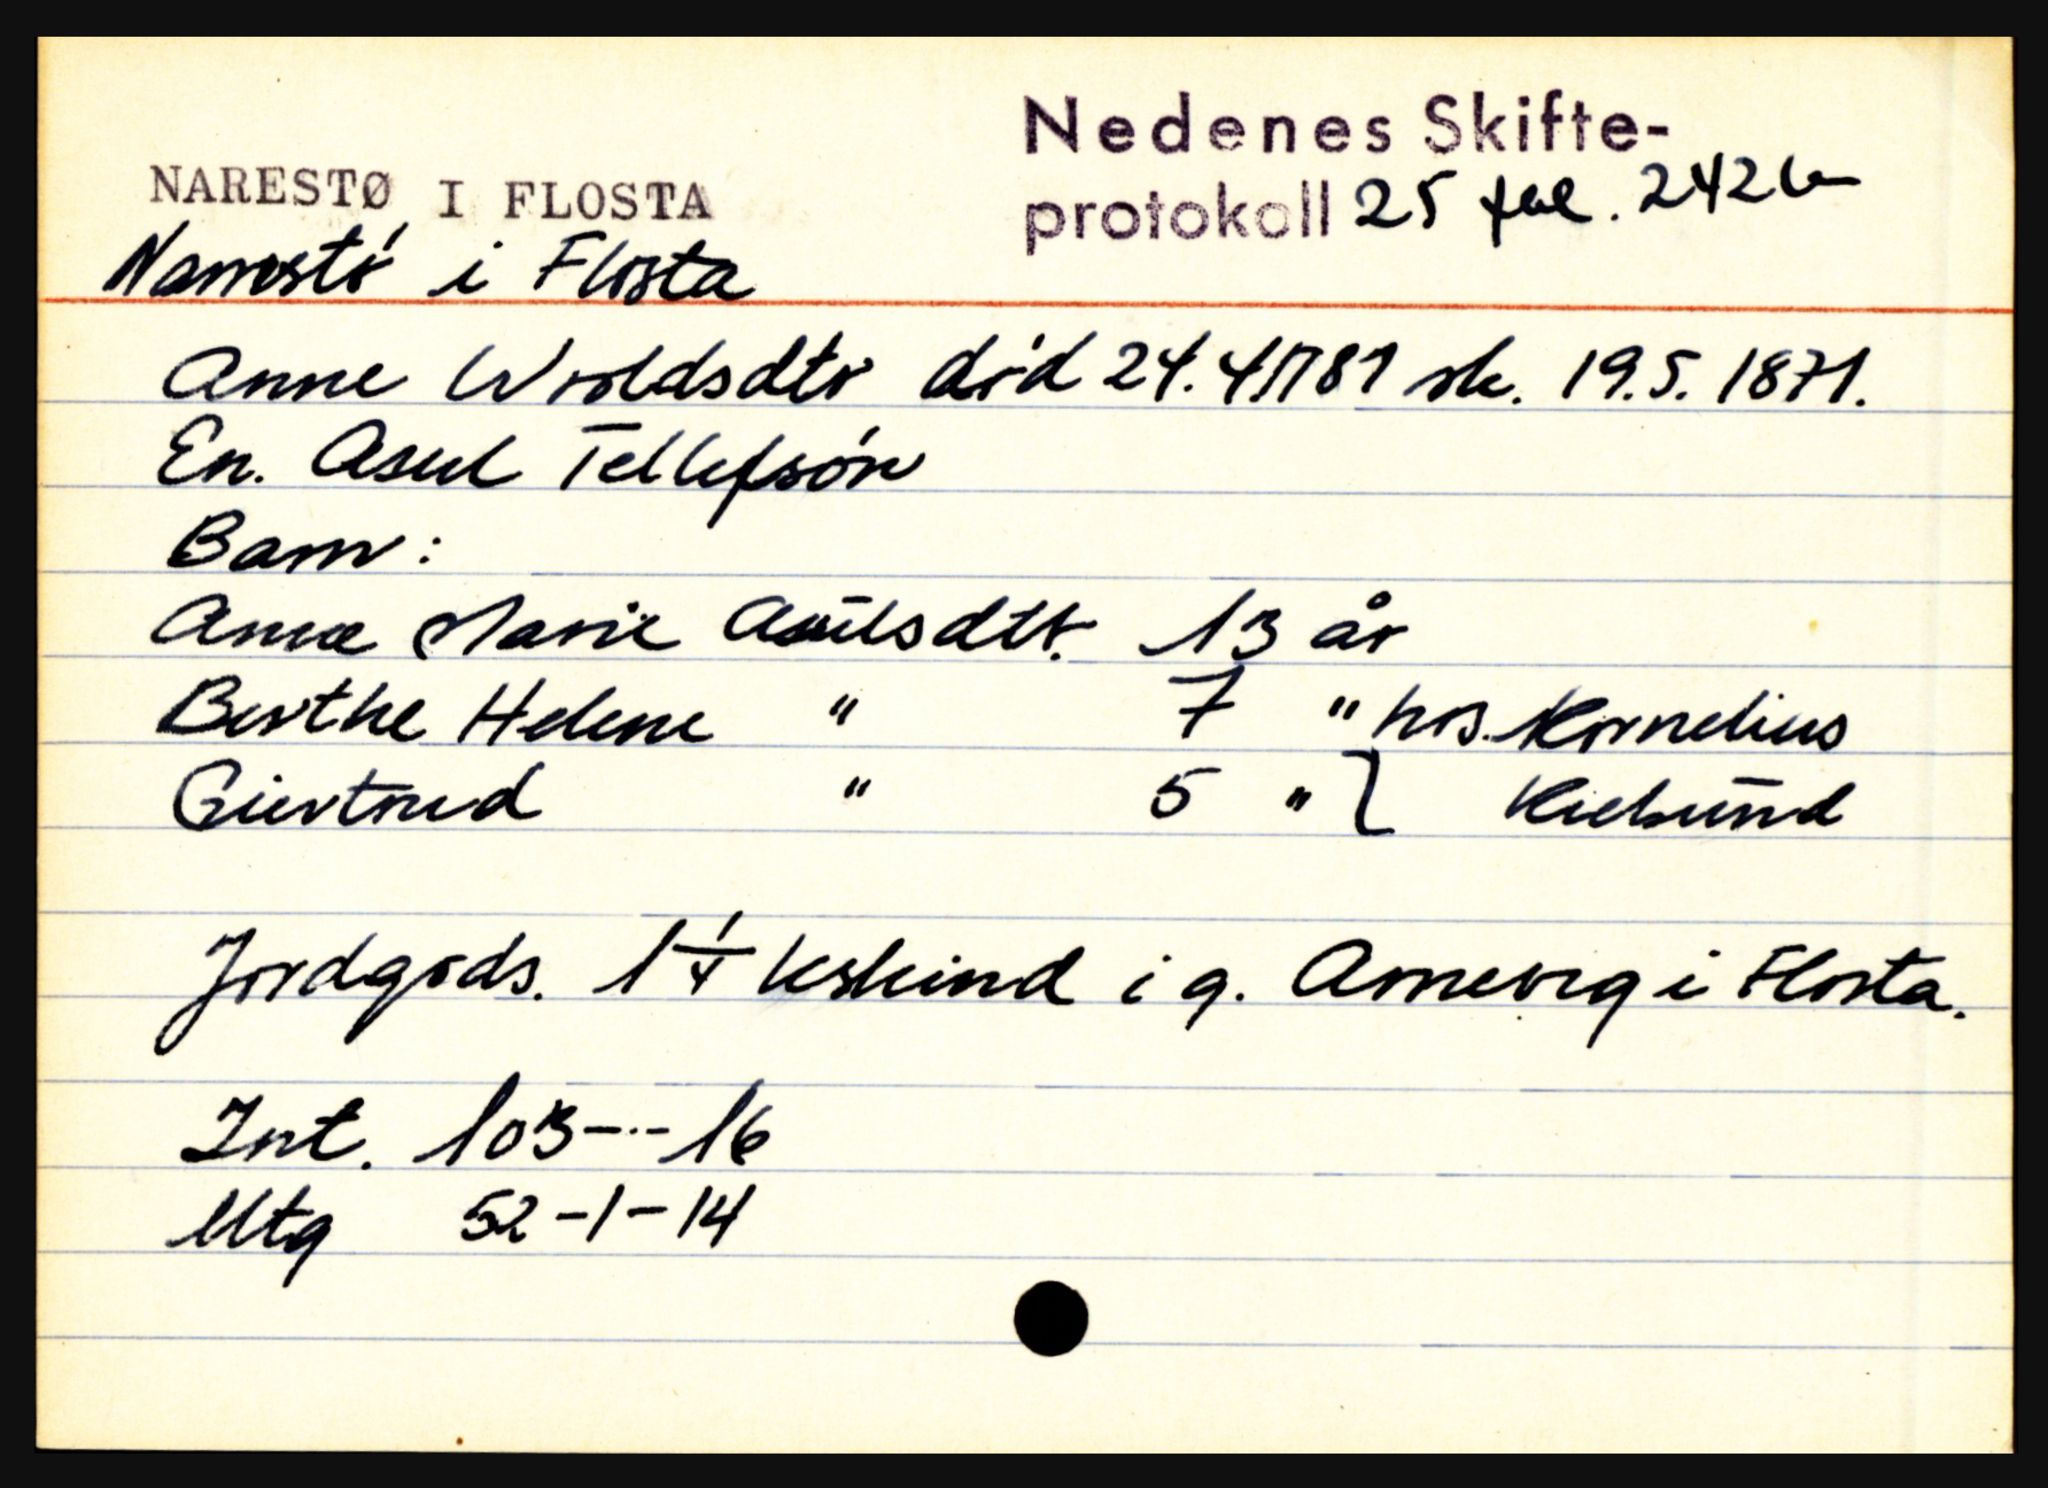 NARESTØ I FLOSTA
Nedenes Skifte-
protokoll 25 fol. 242b
Narrestø i Flosta
Anne Wroldsdtr død 24.4.1781 sk. 19.5.1871.
En. Asul Tellefsøn
Barn:
Anne Marie Asulsdtr. 13 år
Berthe Helene " 7 " hos. Kornelius
Giertrud " 5 " } Kielsund
Jordgods. 1 1/4 kskind i g. Arnevig i Flosta.
Int. 103-..-16
Utg 52-1-14